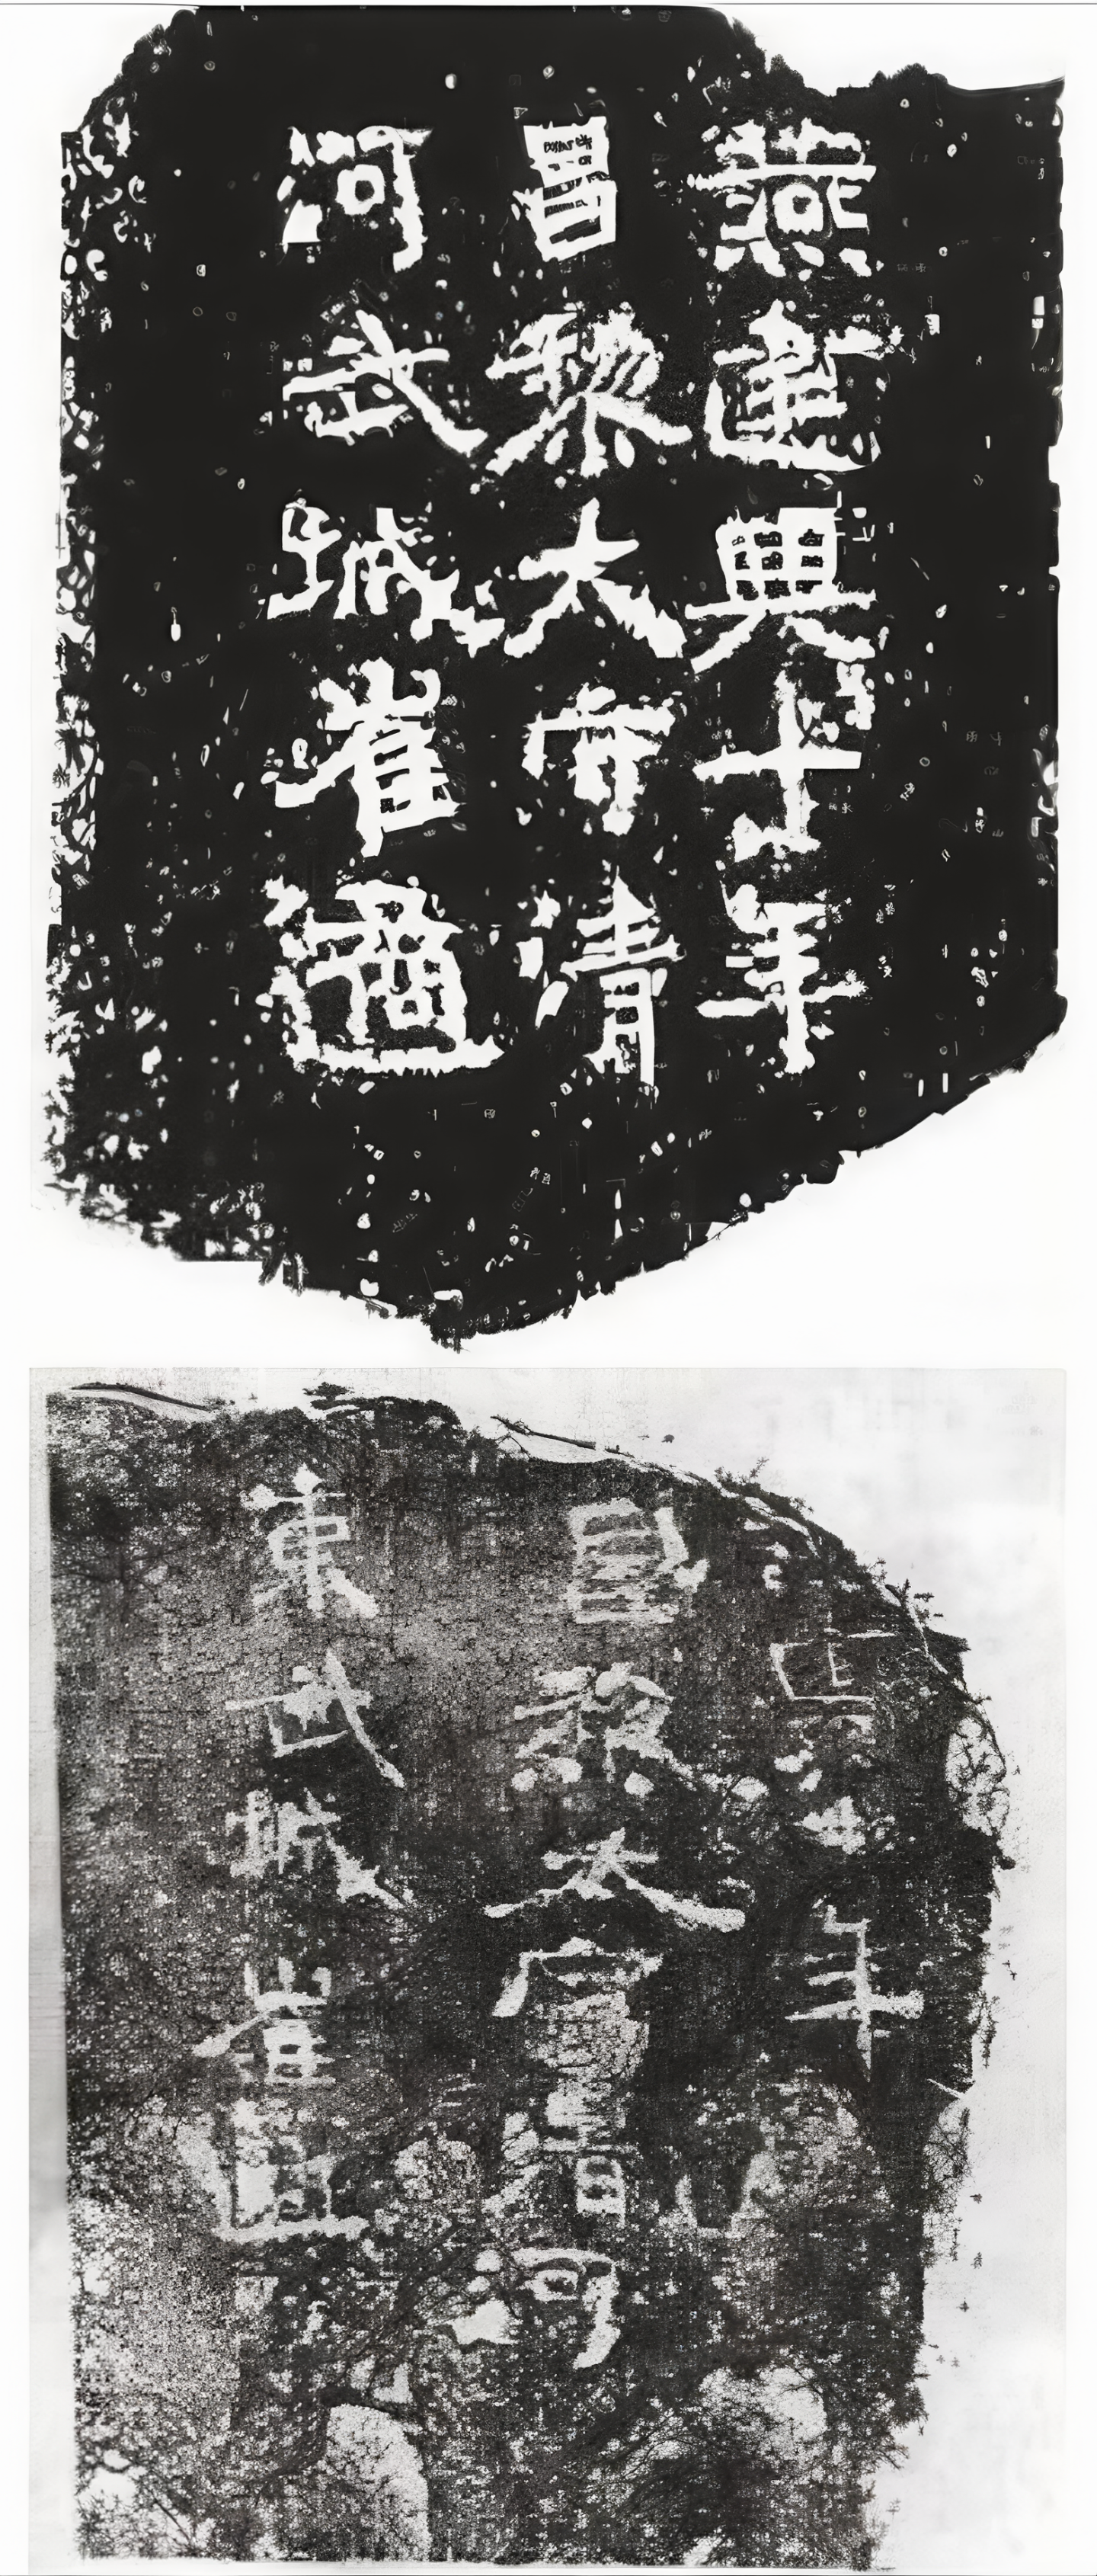 燕建興十年
昌黎太守清
河武城崔遹
興十年
昌黎太守清河
東武城崔遹